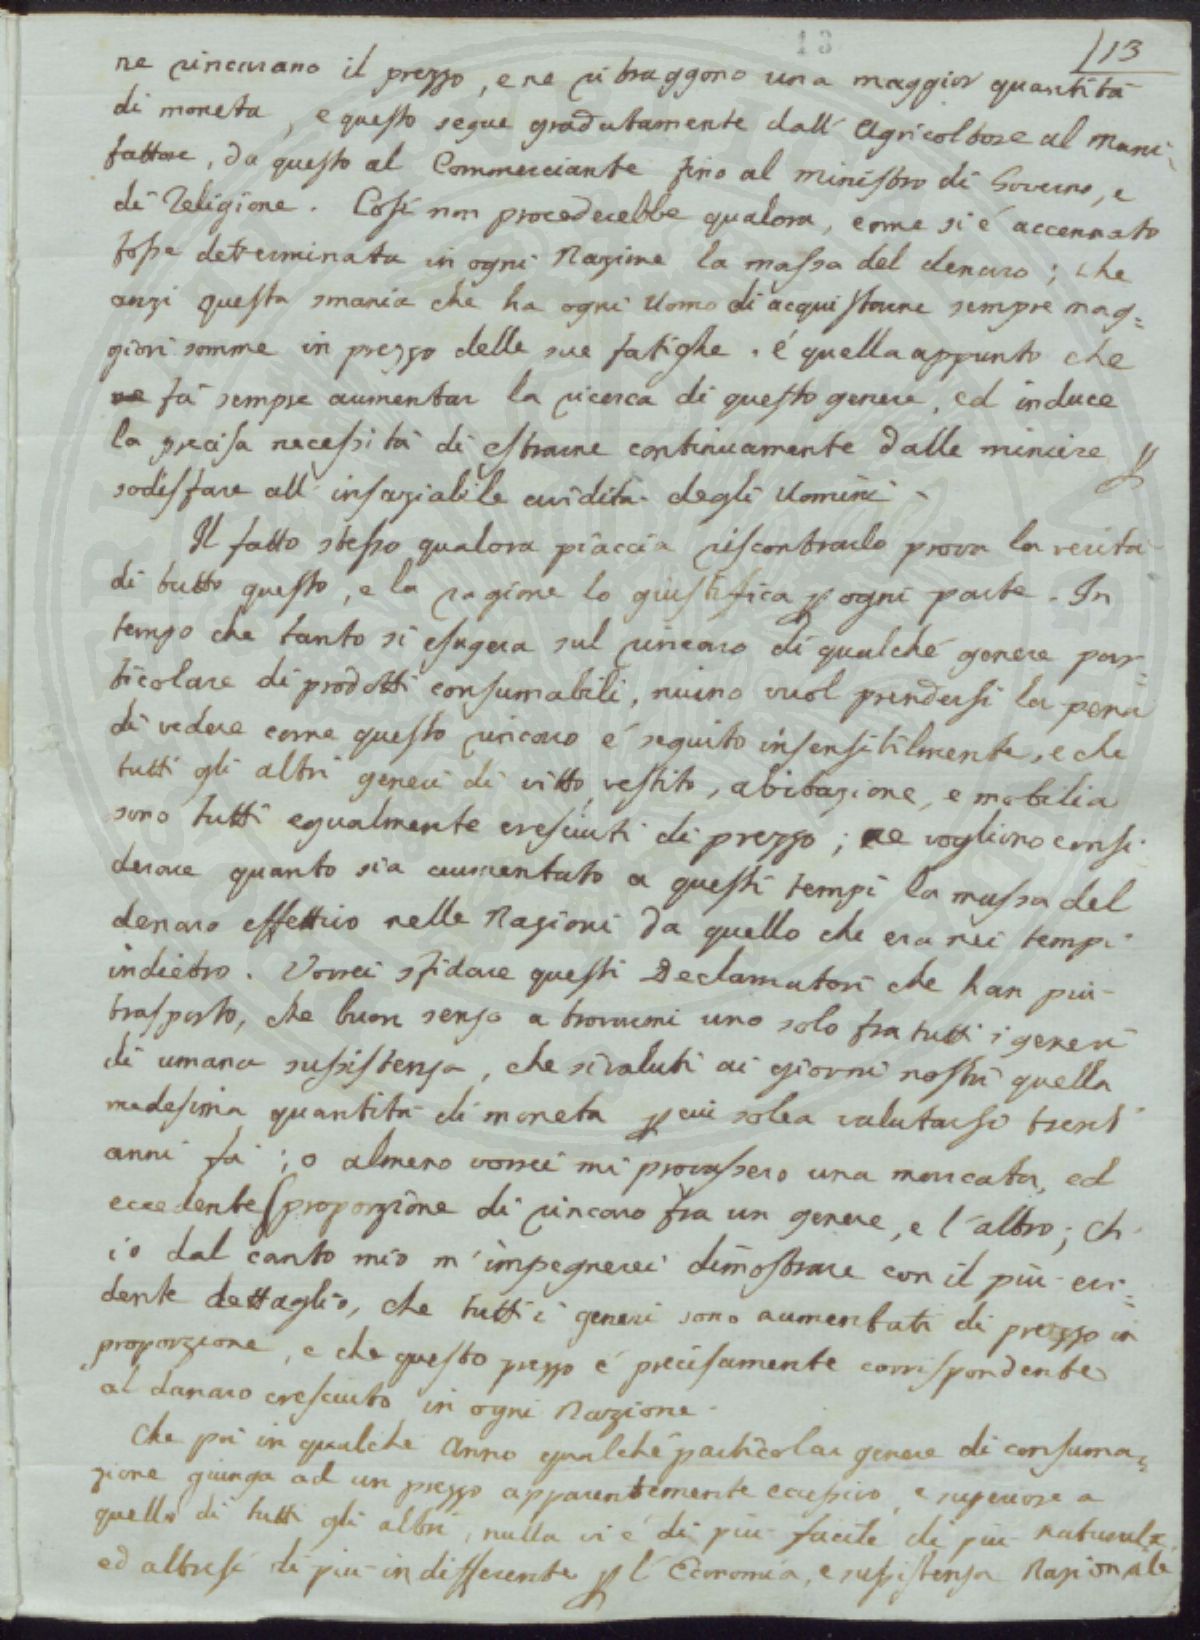 13
13
ne rincarano il prezzo, e ne ritraggono una maggior quantità
di moneta, e questo segue gradatamente dall' Agricoltore al Mani-
fattore, da questo al Commerciante fino al ministro di Governo, e
di Religione. Così non procederebbe qualora, come si è accennato
fosse determinata in ogni Nazione la massa del denaro; che
anzi questa smania che ha ogni Uomo di acquistarne sempre mag=
giori somme in prezzo delle sue fatighe. è quella appunto che
ne fà sempre aumentar la ricerca di questo genere, ed induce
la precisa necessità di estrarne continuamente dalle miniere p
sodisfare all' insaziabile avidità degli Uomini.
Il fatto stesso qualora piaccia riscontrarlo prova la verità
di tutto questo, e la ragione lo giustifica p ogni parte. In
tempo che tanto si esagera sul rincaro di qualche genere par=
ticolare di prodotti consumabili, niuno vuol prendersi la pena
di vedere come questo rincaro è seguito insensibilmente, e che
tutti gli altri generi di vitto, vestito, abitazione, e mobilia
sono tutti egualmente cresciuti di prezzo; ne vogliono consi-
derare quanto sia aumentato a questi tempi la massa del
denaro effettivo nelle Nazioni da quello che era nei tempi
indietro. Vorrei sfidare questi Declamatori che han più
trasporto, che buon senso a trovarmi uno solo fra tutti i generi
di umana sussistenza, che si valuti ai giorni nostri quella
medesima quantità di moneta p cui solea valutarsi trent'
anni fà; o almeno vorrei mi provassero una marcata, ed
eccedente proporzione di rincaro fra un genere, e l'altro; ch'
io dal canto mio m' impegnerei dimostrare con il più evi=
dente dettaglio, che tutti i generi sono aumentati di prezzo in
proporzione, e che questo prezzo è precisamente corrispondente
al danaro cresciuto in ogni Nazione.
Che poi in qualche Anno qualche particolar genere di consuma=
zione giunga ad un prezzo apparentemente eccessivo, e superiore a
quello di tutti gli altri, nulla vi è di più facile di più naturale,
ed altresì di più indifferente p l' Economia, e sussistenza Nazionale